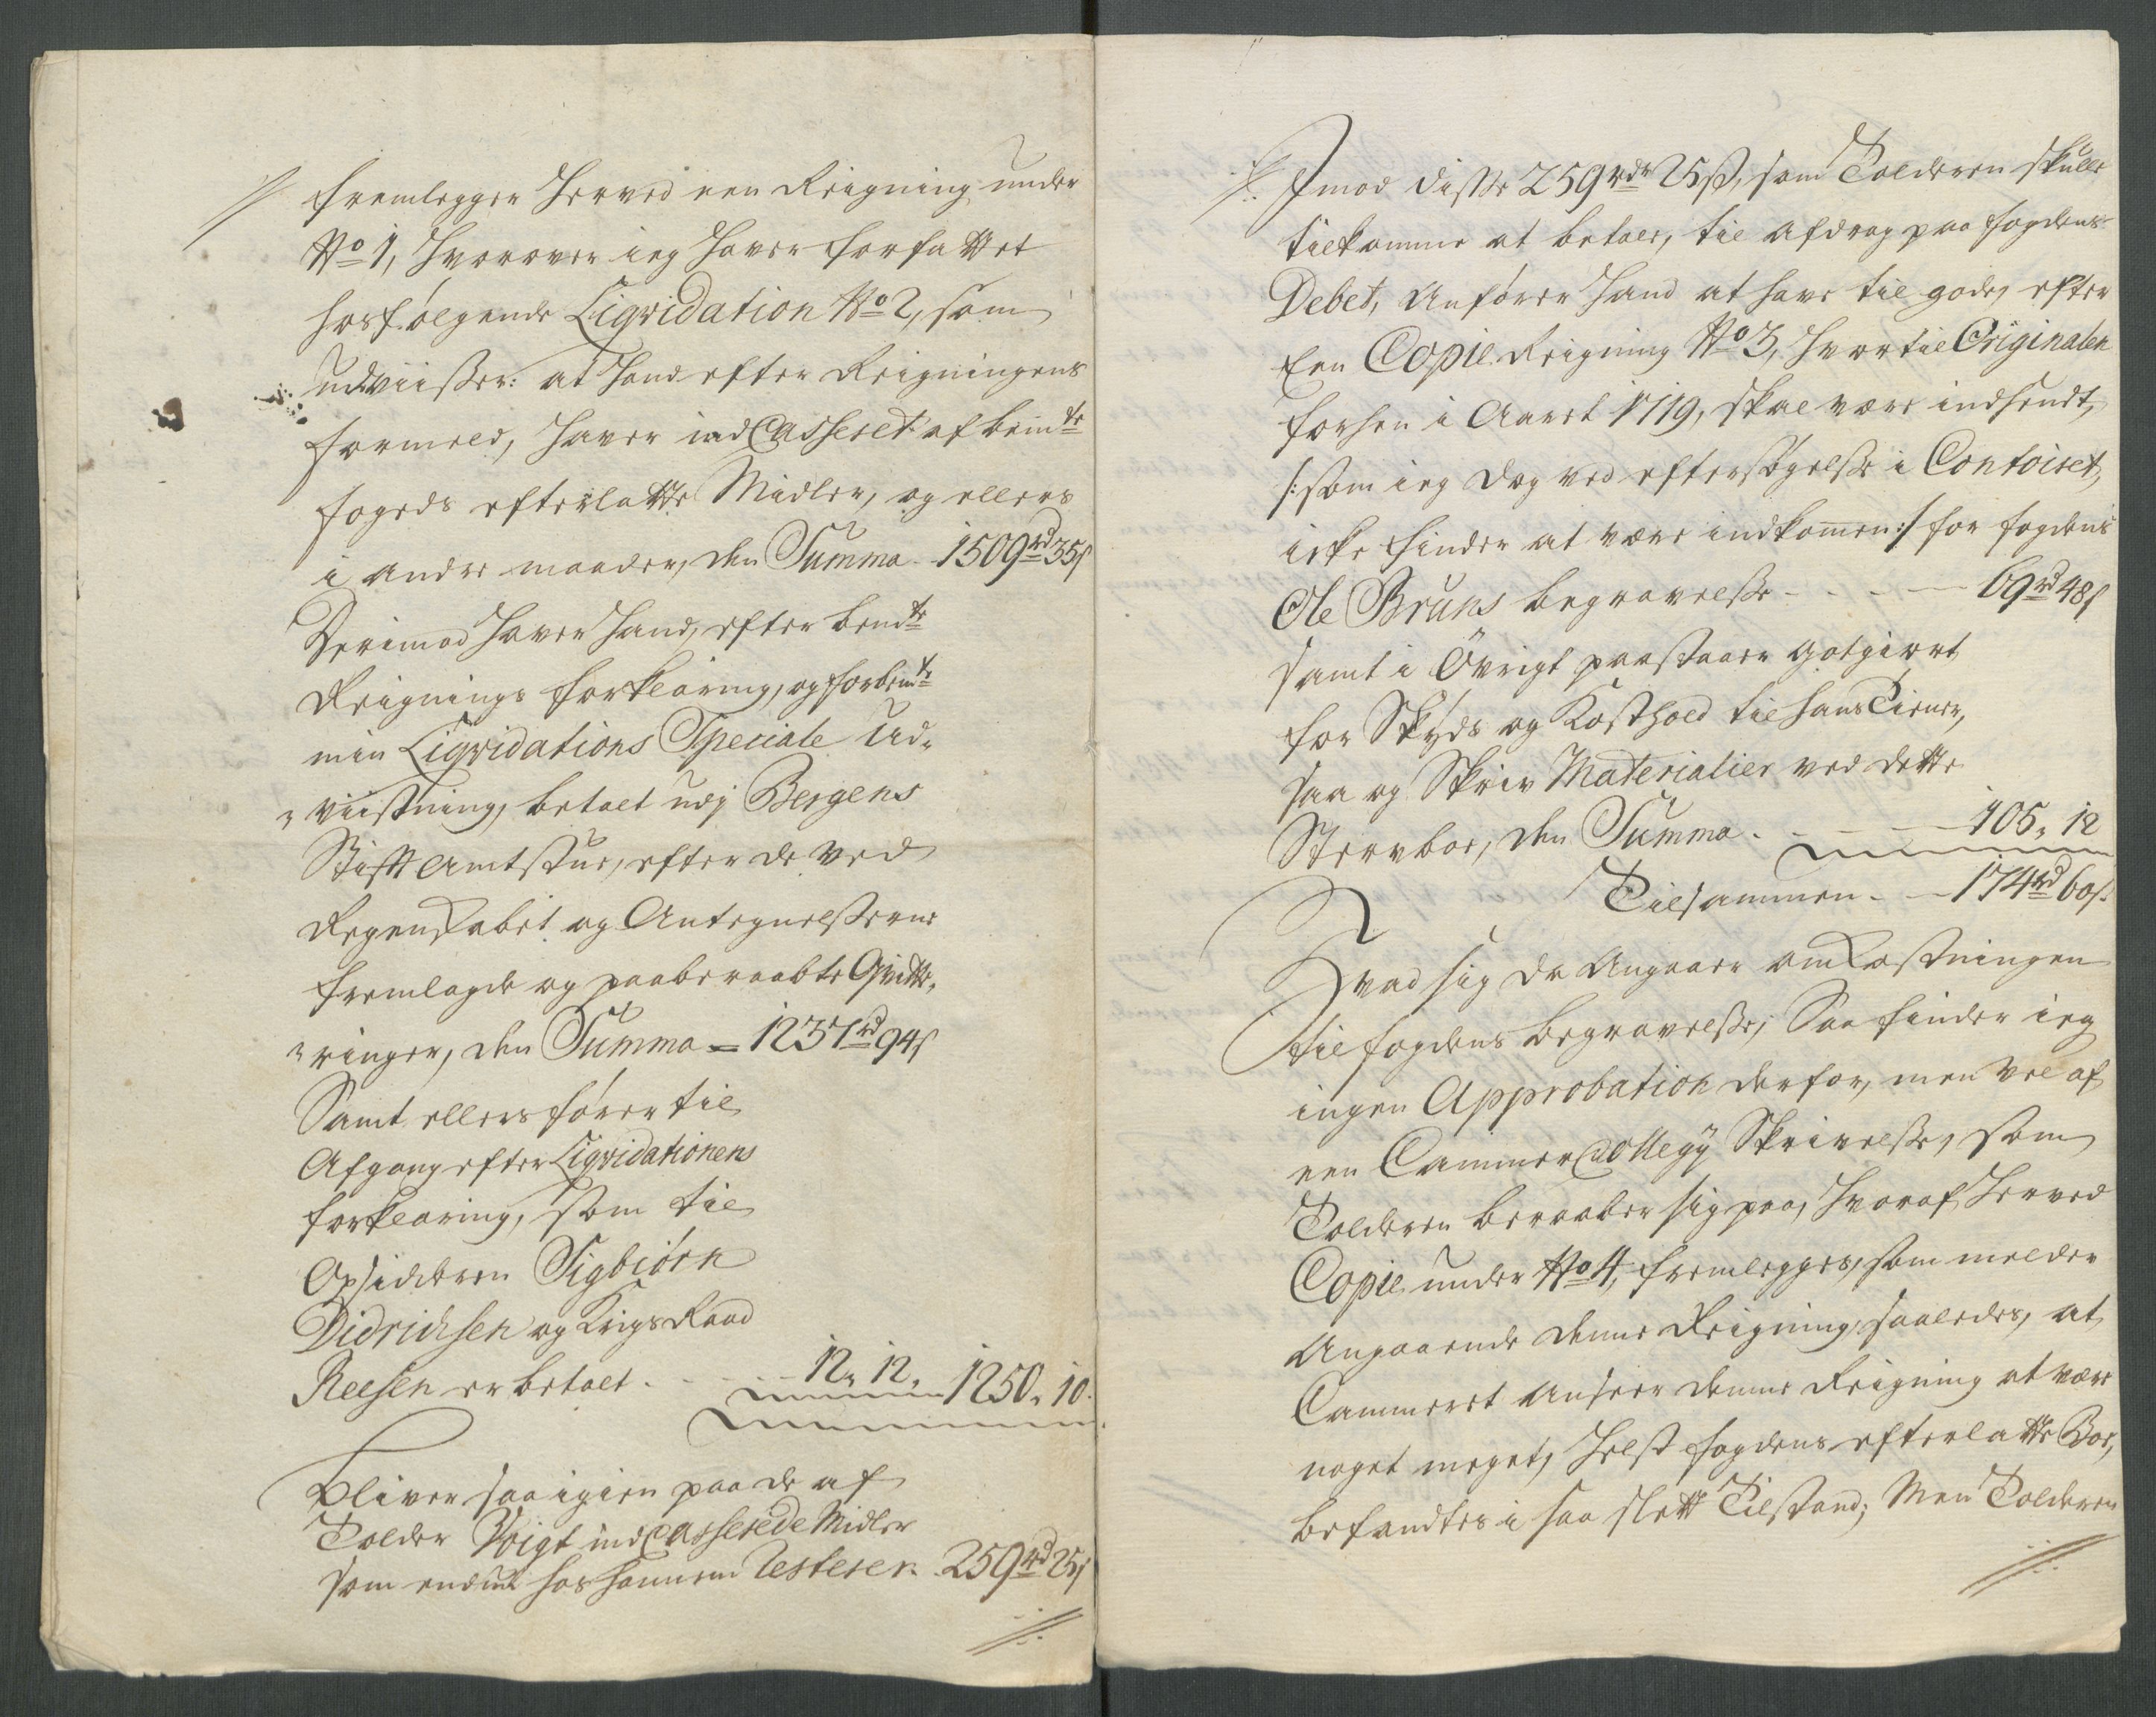 fremlegger herved een Reigning under
No 1, hvorover ieg haver forfattet
hosfølgende Liqvidation No 2, som
udviisser: at hand efter Reigningens
formeld, haver ind Casseret af bemte
fogeds efterlatte Midler, og ellers
i andre maader, den Summa - 1509rd 35s
Derimod haver hand, efter bemte
Reignings forklaring, og forbemte
min Liqvidations Speciale Ud-
viisning, betalt udj Bergens
Stift Amtstue, efter de ved
Regenskabet og Antegnelsserne
fremlagde og paaberaabte Qvitte-
ringer, den Summa = 1237rd 94s
Samt ellers fører til
Afgang efter Liqvidationens
forklaring, som til
Opsidderen Sigbiørn
Didrichsen og Krigs Raad
Reesen er betalt - - - 12, 12, 1250, 10.
Bliver saa igien paa de af
Tolder Voigt ind Casserede Midler
som endnu hos hannem resterer. 259rd 25s
Imod disse 259rdr 25s, som Tolderen skulle
tilkomme at betale, til afdrag paa fogdens
Debet, Anfører hand at have til gode, efter
Een Copie Reigning No 3, hvortil Originalen
forhen i Aaret 1719, skal være indsendt,
/: som ieg dog ved eftersøgelsse i Contoiret,
icke finder at være indkommen :/ for fogdens
Ole Bruns begravelsse - - - 69rd 48s
samt i Øvrigt paastaaer gotgiort
for Skyds og Kosthold til hans Tiener,
saa og Skriv Materialier ved dette
Stervboe, den Summa - - - 105, 12
Tilsammen - - 174rd 60s.
Hvad sig da Angaaer omkostningen
til fogdens begravelsse; Saa finder ieg
ingen Approbation derfor, men vel af
een Cammer Collegij Skrivelsse, som
Tolderen beraaber sig paa, hvoraf herved
Copie under No 4, fremlegges, som melder
Angaaende denne Reigning, saaledes, at
Cammeret Anseer denne Reigning at være
noget meget, helst fogdens efterlatte Boe,
befandtes i saa slett Tilstand; Men Tolderen